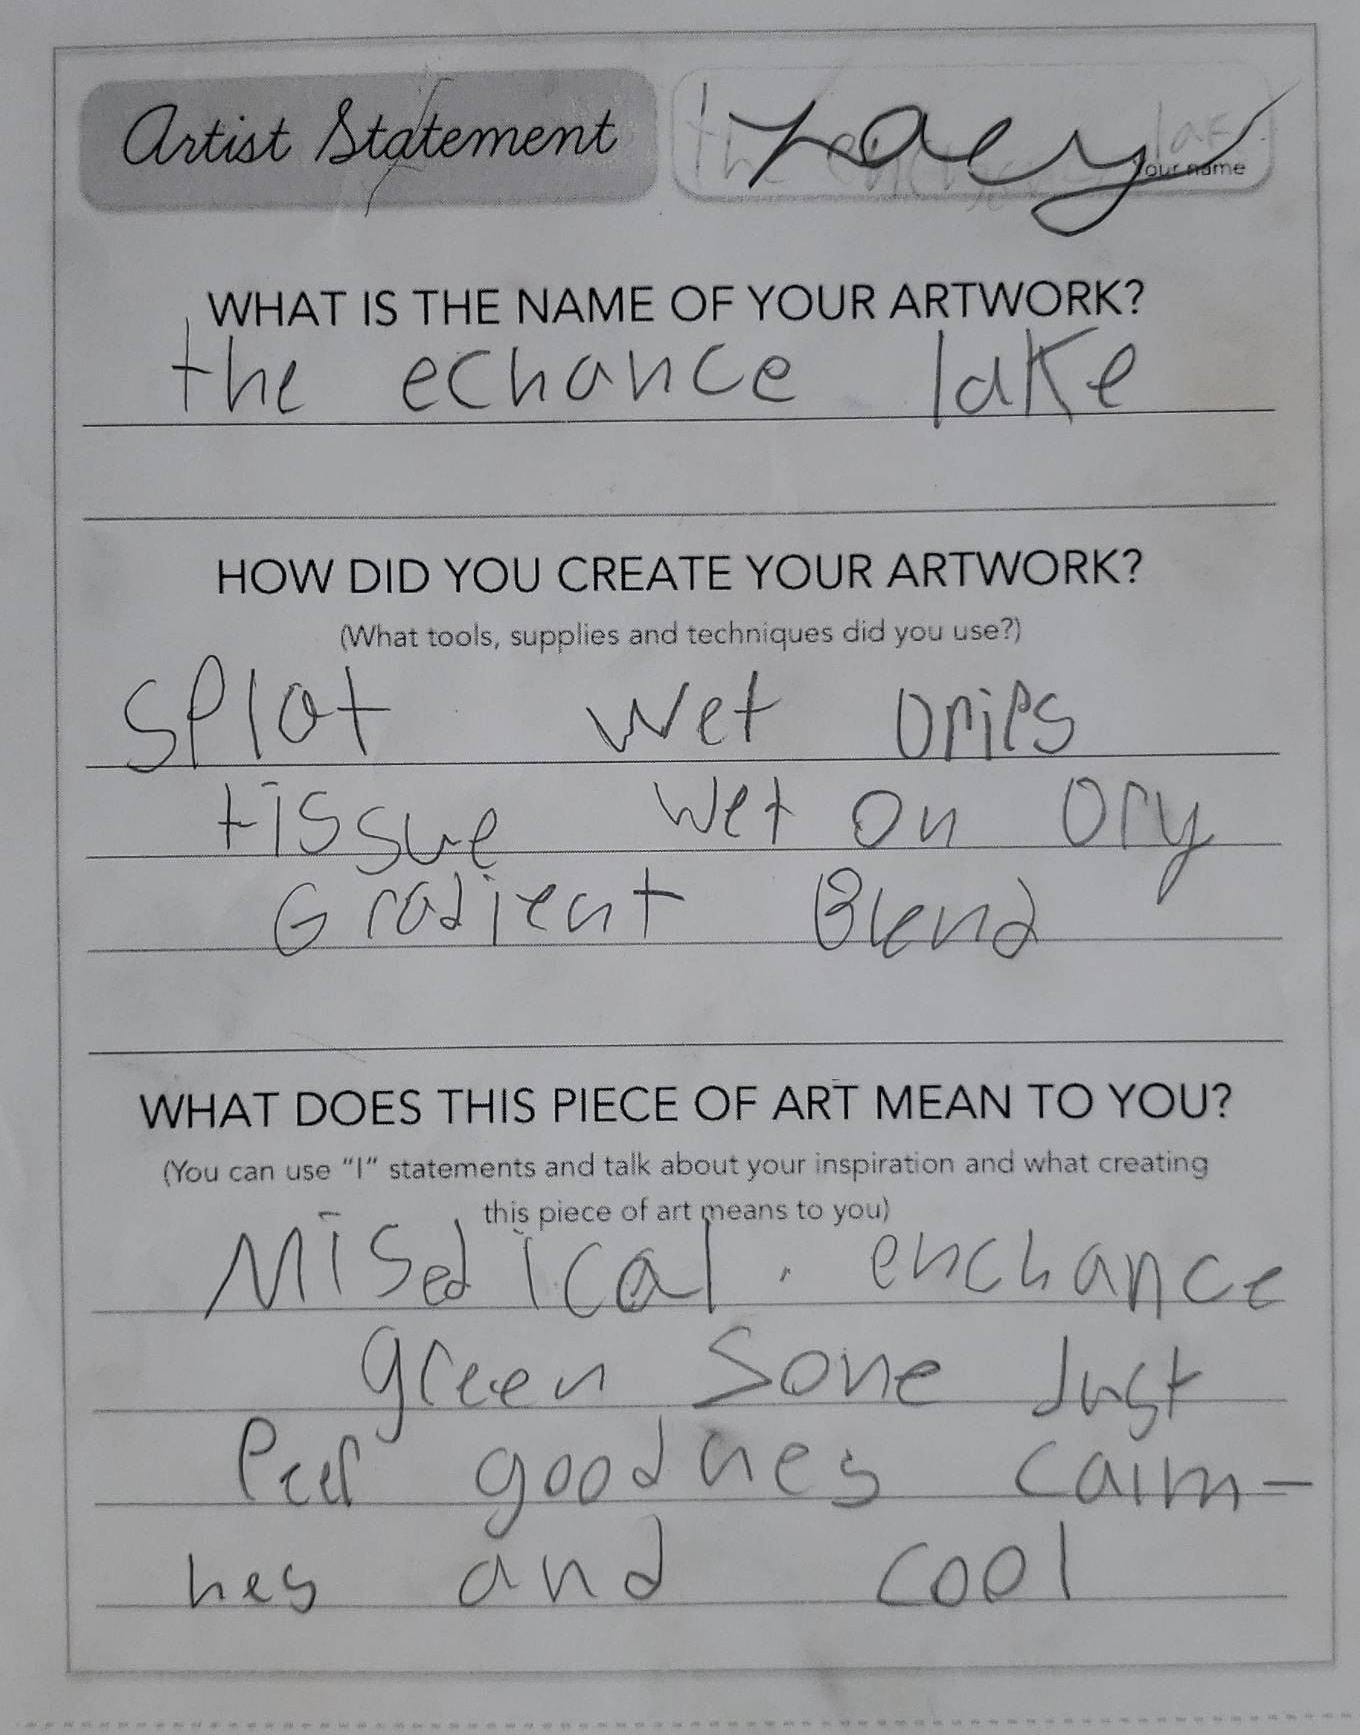 Artist Statement
your name
WHAT IS THE NAME OF YOUR ARTWORK?
the echance lake
HOW DID YOU CREATE YOUR ARTWORK?
(What tools, supplies and techniques did you use?)
Splat wet Drips
tissue wet on Dry
Gradient Blend
WHAT DOES THIS PIECE OF ART MEAN TO YOU?
(You can use "I" statements and talk about your inspiration and what creating
this piece of art means to you)
enchance
green Sone Just
goodnes calm-
nes and cool